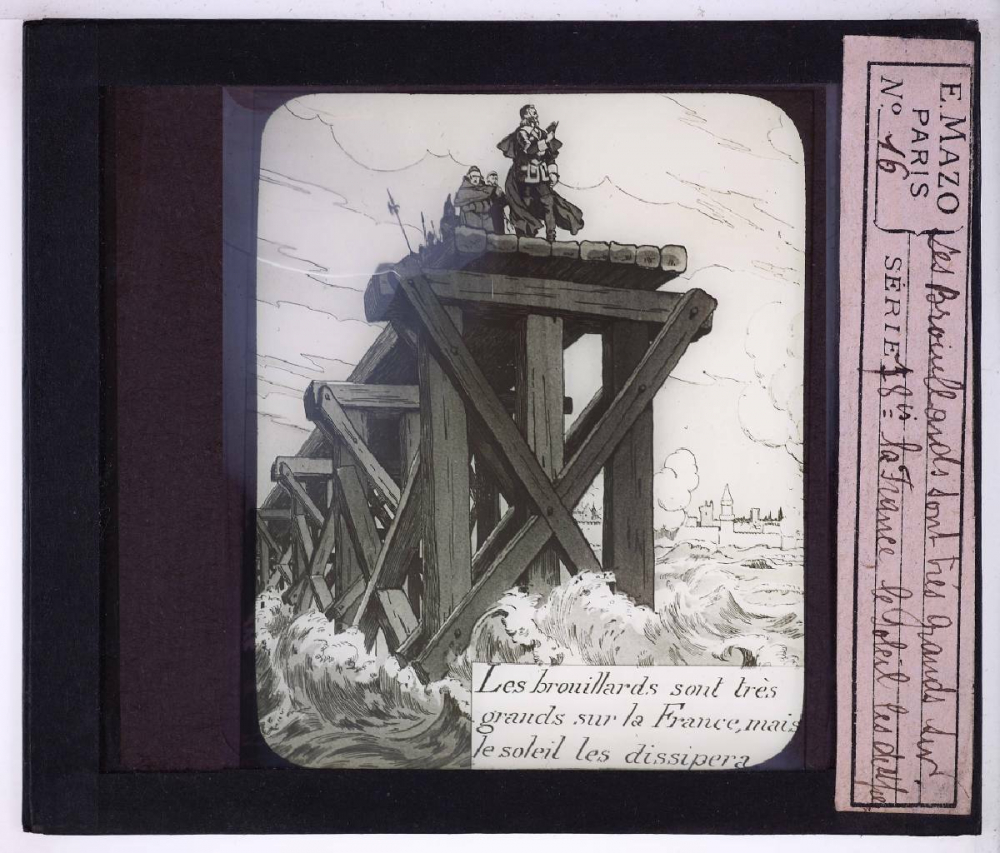 Les brouillards sont très
grands sur la France, mais
le soleil les dissipera
E. MAZO
PARIS
No 16
SÉRIE 18 bis
Les Brouillards sont très grands sur
la France, le Soleil les